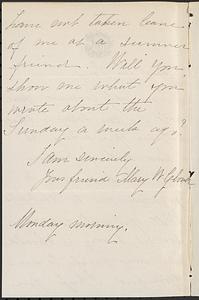 have not taken leave
of me as a summer
friend. Will you
show me what you
wrote about the
Sunday a week ago?
I am sincerely
Your friend Mary W.
Monday morning.